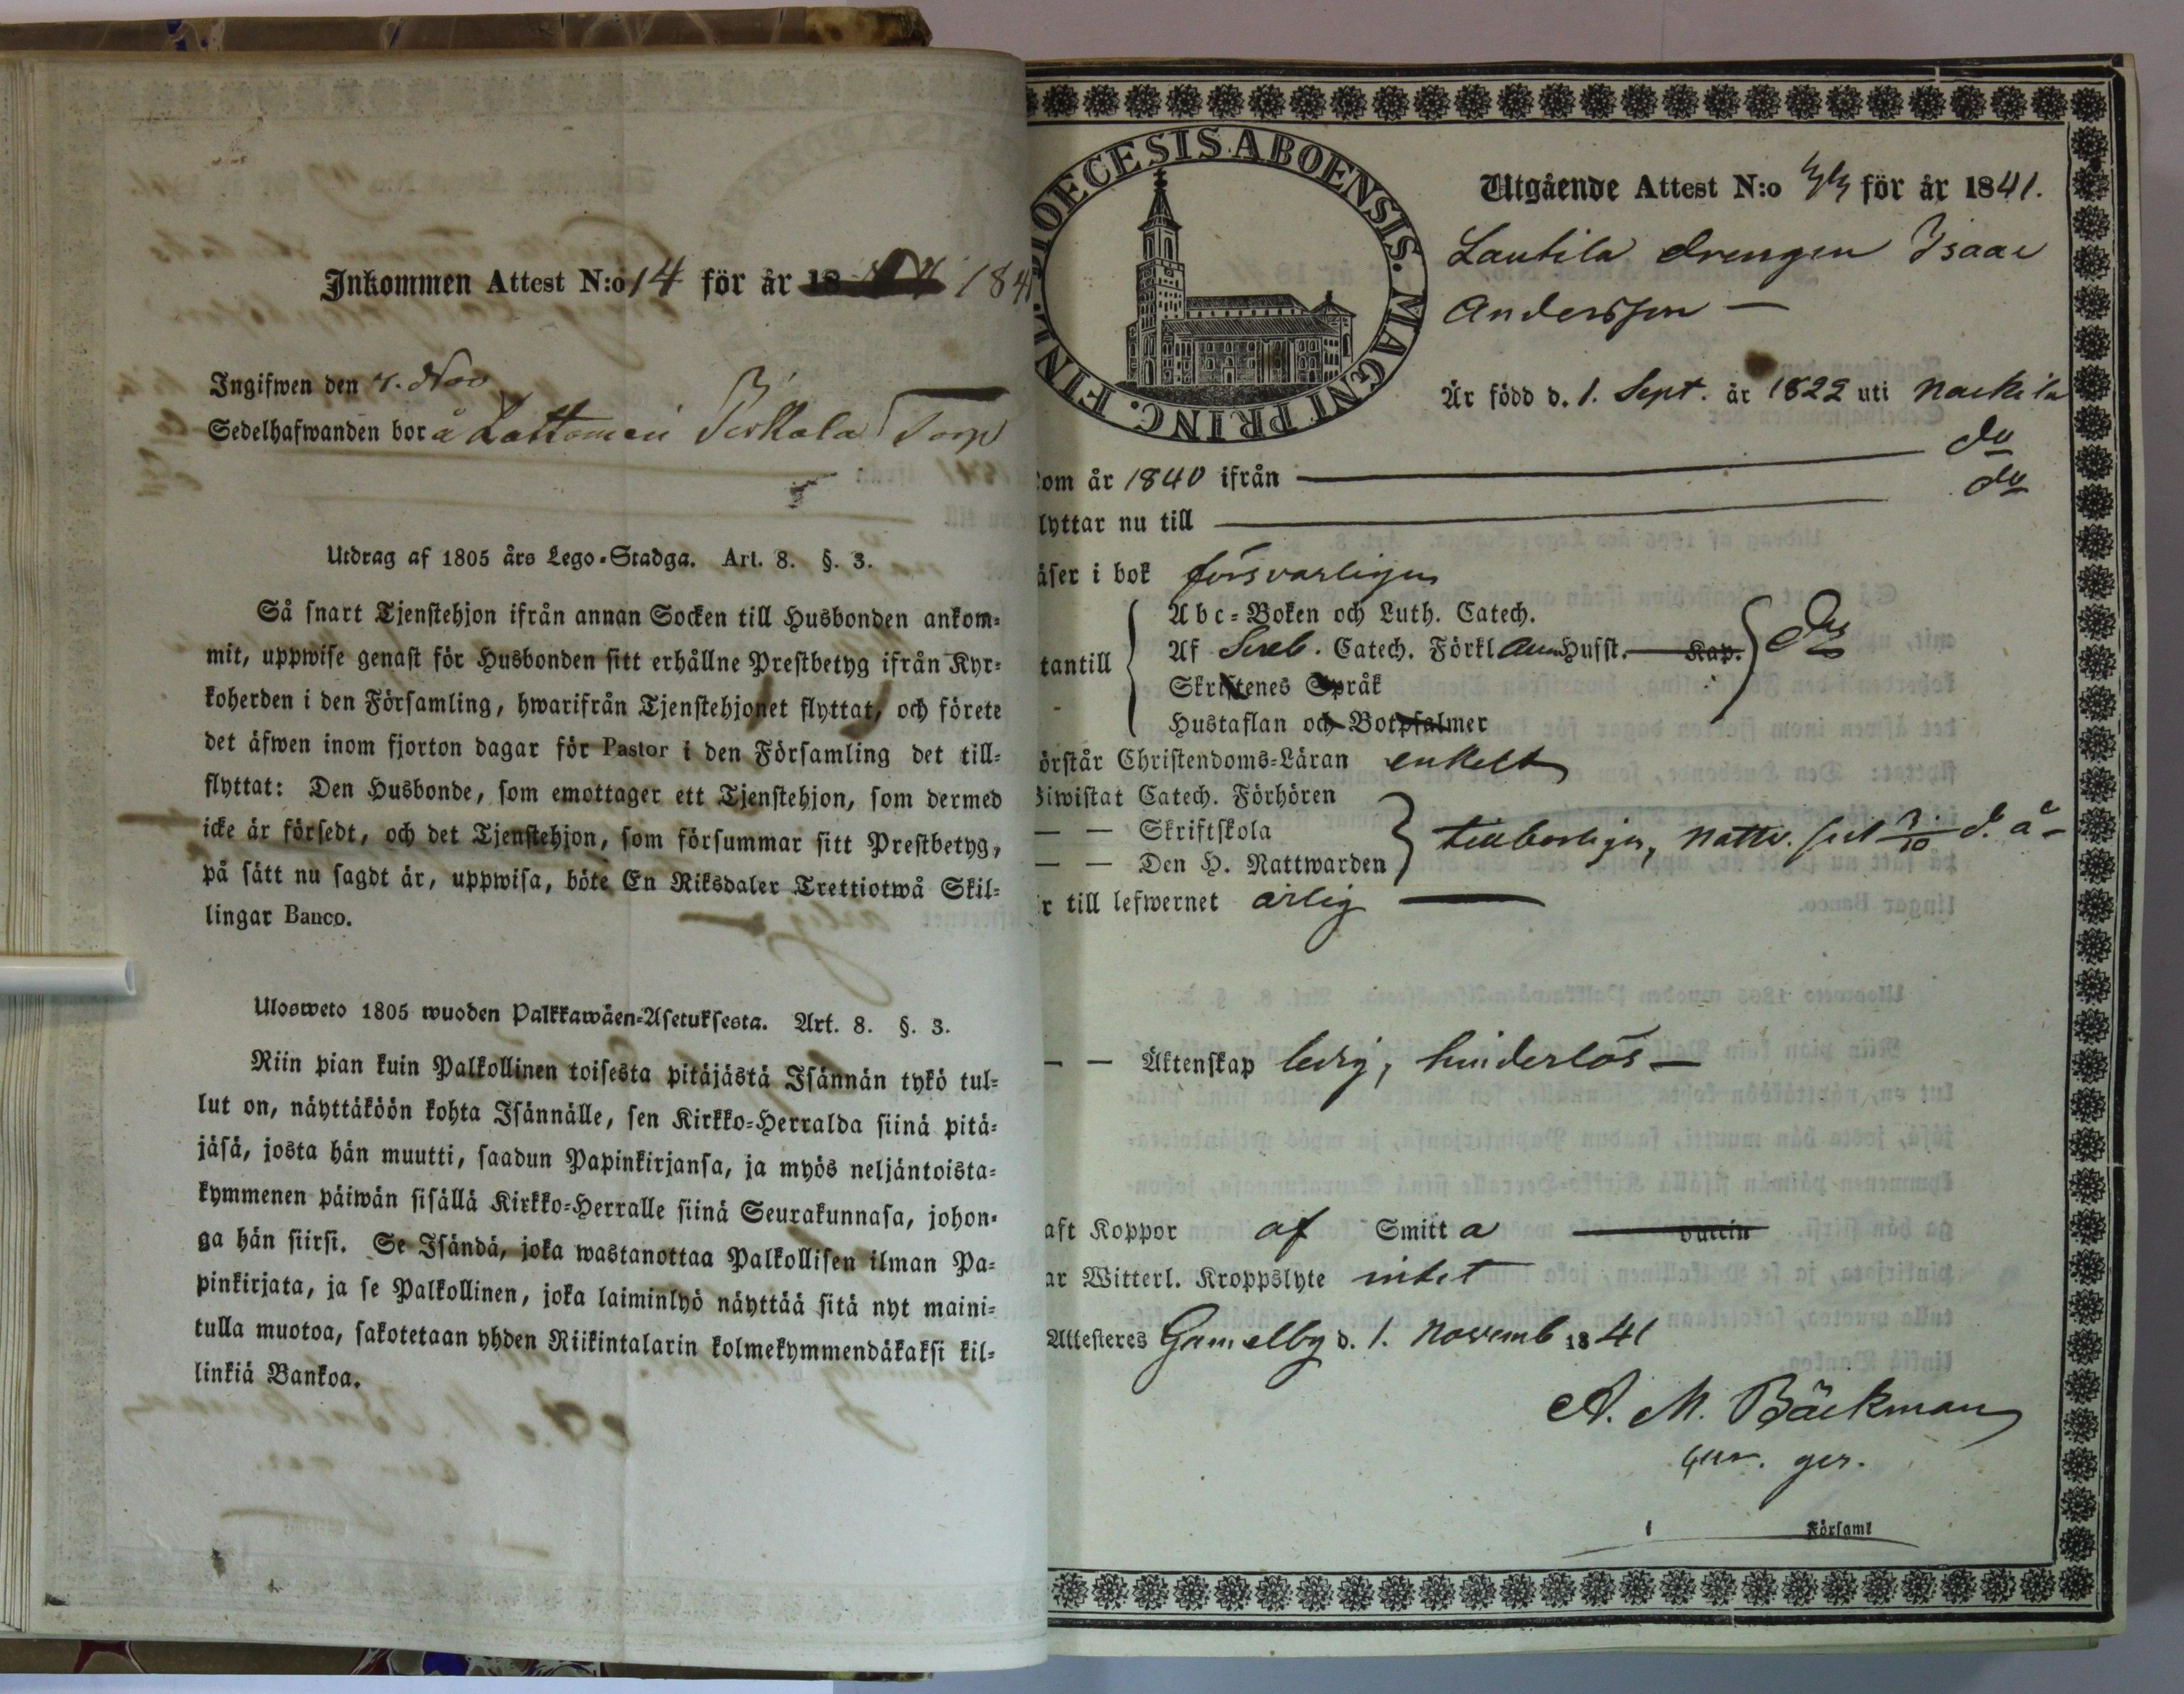 Inkommen Attest N:o 14 för år 18 184
Ingifwen den 4. Nov
Sedelhafwanden bor å Lattomeri Torp
Utdrag af 1805 års Lego-Stadga. Art. 8. §. 3.
Så snart Tjenstehjon ifrån annan Socken till Husbonden ankom-
mit, uppwise genast för Husbonden sitt erhållne Prestbetyg ifrån Kyr-
koherden i den Församling, hwarifrån Tjenstehjonet flyttat, och förete
det äfwen inom fjorton dagar för Pastor i den Församling det till-
flyttat: Den Husbonde, som emottager ett Tjenstehjon, som dermed
icke är försedt, och det Tjenstehjon, som försummar sitt Prestbetyg,
på sätt nu sagdt är, uppwisa, böte En Riksdaler Trettiotwå Skil-
lingar Banco.
Ulosweto 1805 wuoden Palkkawäen-Asetuksesta. Art. 8. §. 3.
Niin pian kuin Palkollinen toisesta pitäjästä Isännän tykö tul-
lut on, näyttäköön kohta Isännälle, sen Kirkko-Herralda siinä pitä-
jäsä, josta hän muutti, saadun Papinkirjansa, ja myös neljäntoista-
kymmenen päiwän sisällä Kirkko-Herralle siinä Seurakunnasa, johon-
ga hän siirsi. Se Isändä, joka wastanottaa Palkollisen ilman Pa-
pinkirjata, ja se Palkollinen, joka laiminlyö näyttää sitä nyt maini-
tulla muotoa, sakotetaan yhden Riikintalarin kolmekymmendäkaksi kil-
linkiä Bankoa.
DIOECESIS ABOENSIS. MAGNI PRINC. FINL.
Utgående Attest N:o för år 1841.
Lautila drengen Isaac
Andersson —
Är född d. 1. Sept. år 1822 uti Nackila
om år 1840 ifrån — do
lyttar nu till — do
äser i bok försvarligen
Abc-Boken och Luth. Catech.
tantill Af Sveb. Catech. Förkl Husst. Kap. do
Skriftenes Språk
Hustaflan och Botpsalmer
örstår Christendoms-Läran enkelt
Biwistat Catech. Förhören
— — Skriftskola
— — Den H. Nattwarden tillbörligen, Nattv. sist 3/10 d. å-
r till lefwernet ärlig —
— — Äktenskap ledig, hinderlös —
aft Koppor af Smitta vaccin
ar Witterl. Kroppslyte intet
Attesteres Gamelby d. 1. Novemb 1841
A. M. Bäckman
Församl